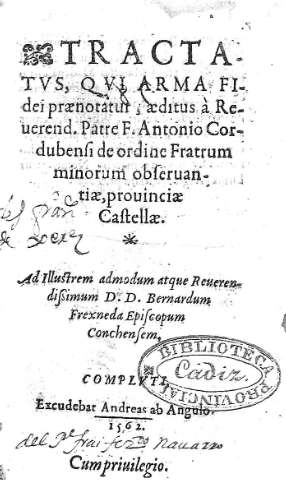 TRACTA-
TVS, QVI ARMA FI-
dei prænotatur, æditus à Re-
uerend. Patre F. Antonio Cor-
dubensi de ordine Fratrum
minorum obseruan-
tiæ, prouinciæ
Castellæ.
Ad Illustrem admodum atque Reueren-
dissimum D. D. Bernardum
Frexneda Episcopum
Conchensem,
BIBLIOTECA
PROVINCIAL
Cadiz.
COMPLVTI
Excudebat Andreas ab Angulo.
1562.
nauarro
Cum priuilegio.